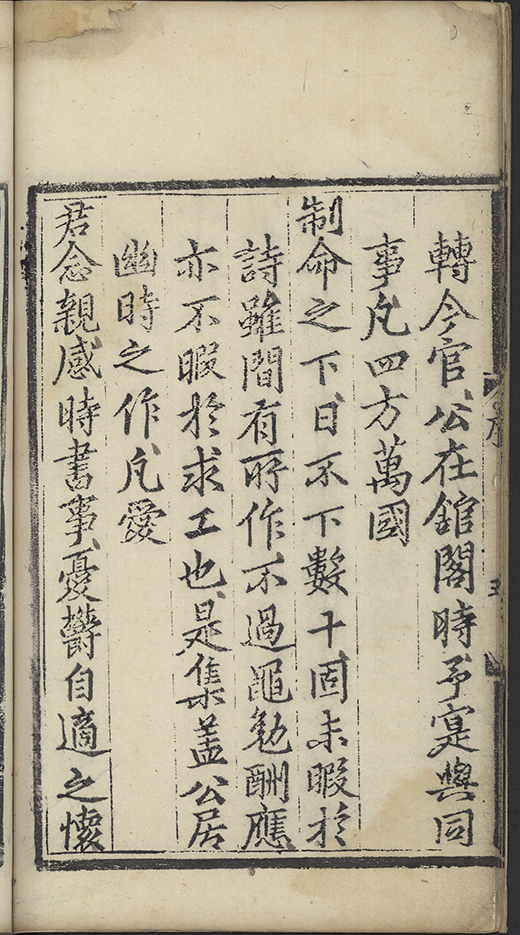 轉今官公在舘閣時予寔與同
事凡四方萬國
制命之下日不下數十固未暇於
詩雖間有所作不過黽勉酬應
亦不暇於求工也是集盖公居
幽時之作凡愛
君念親感時書事憂欝自適之懷